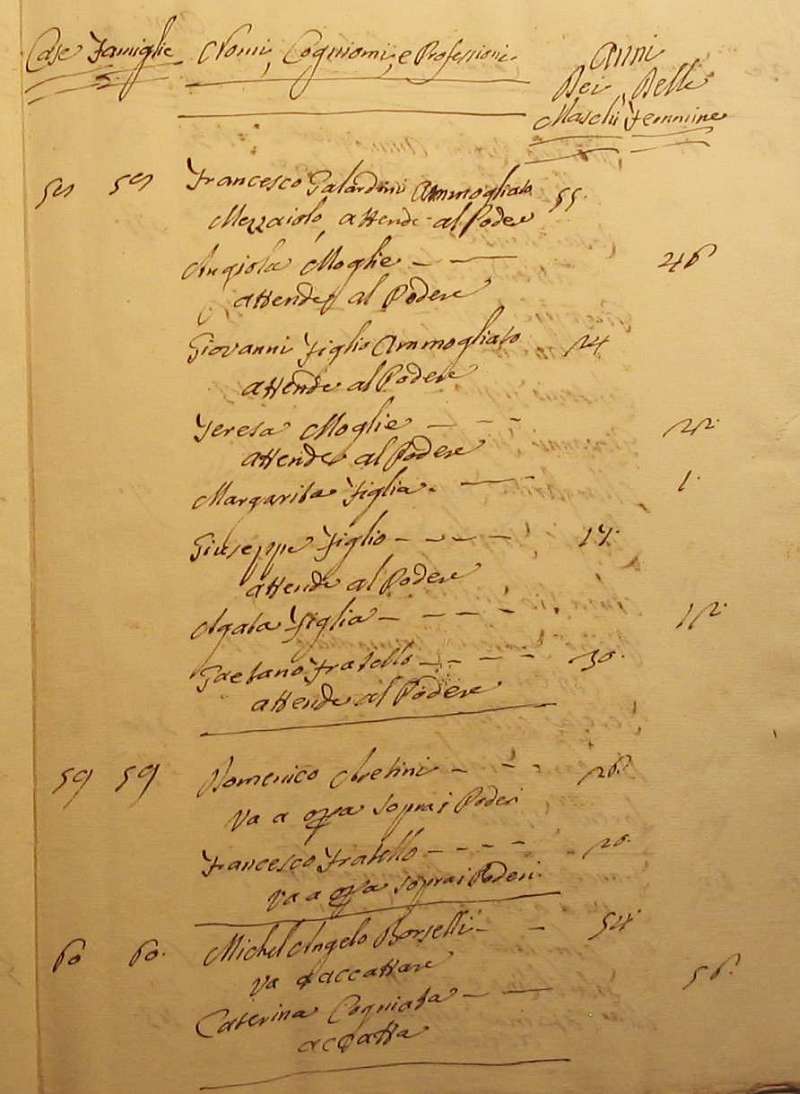 Case Famiglie Nomi, Cogniomi, e Professioni
Anni
Dei Delle
Maschi Femmine
58 58 Francesco Galardini Ammogliato 55.
Mezzaiolo, attende al Poder
Angiola Moglie — — 46
attende al Podere
Giovanni Figlio Ammogliato 24
attende al Podere
Teresa Moglie - - - 22.
attende al Podere
Margarita Figlia. — 1.
Giuseppe Figlio - - - - 17.
attende al Podere
Agata Figlia - - - - 12.
Gaetano Fratello - - - - 30.
attende al Podere
59 59 Domenico Aretini - - - 26.
Va a opra sopra i Poderi
Francesco Fratello - - - - 20.
Va a opra sopra i Poderi.
60 60. Michel Angelo Borselli - - 54
va accattare
Caterina Cogniata - — 56.
accatta